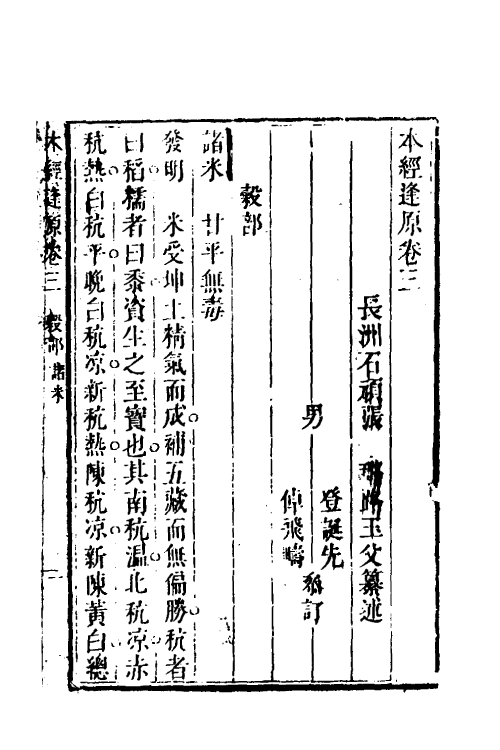 本經逢原卷三
長洲石頑張 璐路玉父纂述
男
登誕先
倬飛疇
訂
穀部
諸米 甘平無毒
發明 米受坤土精氣而成補五藏而無偏勝秔者
曰稻糯者曰黍資生之至寶也其南秔溫北秔凉赤
秔熱白秔平晚白秔凉新秔熱陳秔凉新陳黃白總
本經逢原卷三 穀部 諸米 一